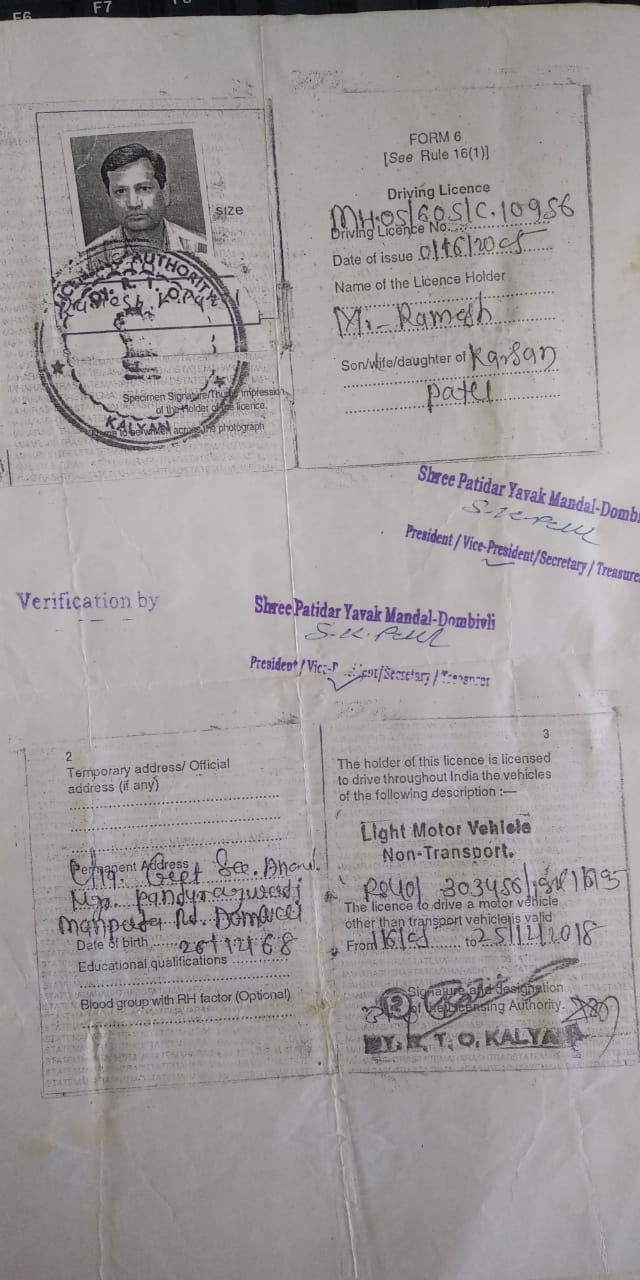 F6
F7
size
LICENCING AUTHORITY
DY. R. T. O.
KALYAN
Specimen Signature/Thumb impression
of the Holder of the licence.
Name to be written across the photograph
FORM 6
[See Rule 16(1)]
Driving Licence
Driving Licence No.
Date of issue
Name of the Licence Holder
Mr. Ramesh
Son/wife/daughter of Karsan
Patel
Shree Patidar Yavak Mandal-Dombi
S. K. Patel
President / Vice-President/Secretary / Treasure
Verification by
Shree Patidar Yavak Mandal-Dombivli
S. K. Patel
President / Vice-President/Secretary / Treasurer
2
Temporary address/ Official
address (if any)
Permanent Address
Manpada Rd.
Date of birth
Educational qualifications
Blood group with RH factor (Optional)
3
The holder of this licence is licensed
to drive throughout India the vehicles
of the following description :—
Light Motor Vehicle
Non-Transport.
The licence to drive a motor vehicle
other than transport vehicle is valid
From to 25/12/2018
Signature and designation
of the Licensing Authority.
DY. R. T. O. KALYAN